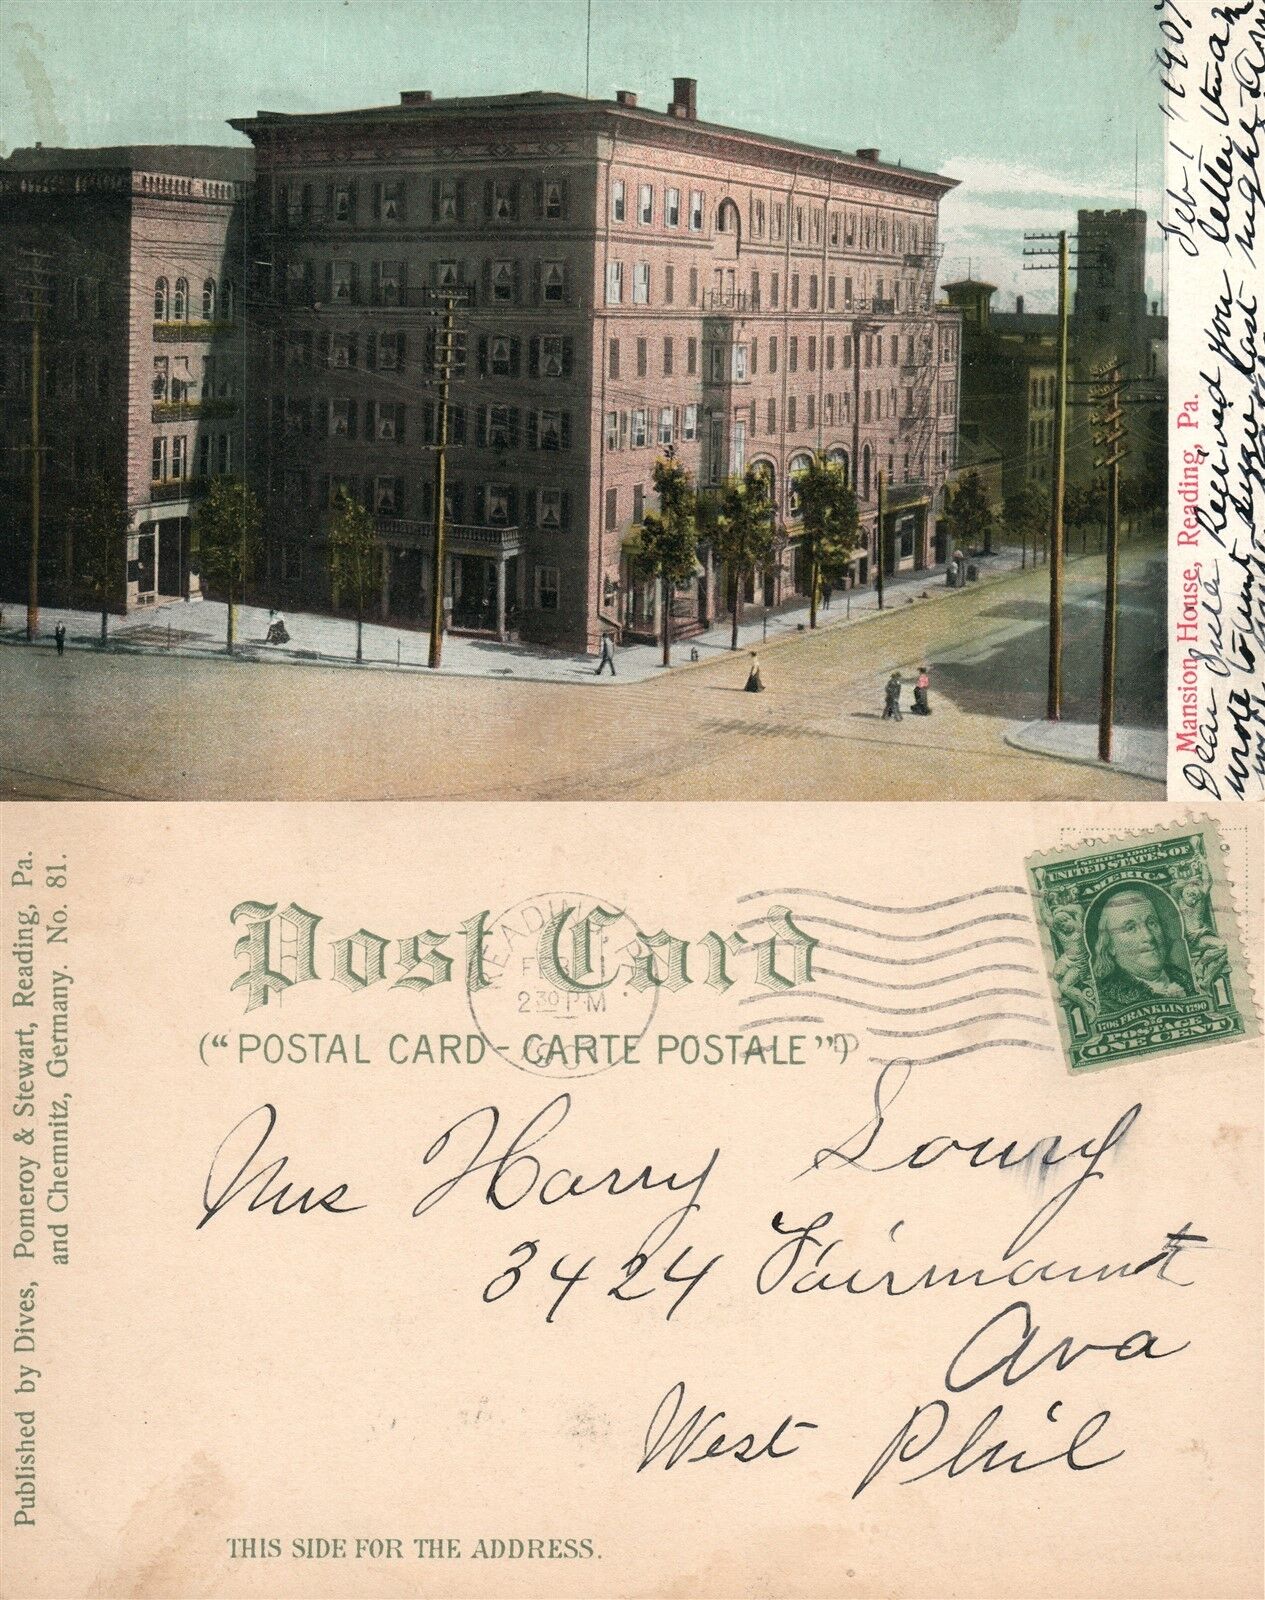 Mansion House, Reading, Pa.
Feb 1 1907
Dear Received you letter
wrote to last night
Post Card
("POSTAL CARD - CARTE POSTALE")
READING, PA.
FEB
2 30 PM
SERIES 1902
UNITED STATES OF
AMERICA
1706 FRANKLIN 1790
POSTAGE
1 1
ONE CENT
Mrs Harry Lowry
3424 Fairmount
Ava
West Phil
THIS SIDE FOR THE ADDRESS.
Published by Dives, Pomeroy & Stewart, Reading, Pa.
and Chemnitz, Germany. No. 81.